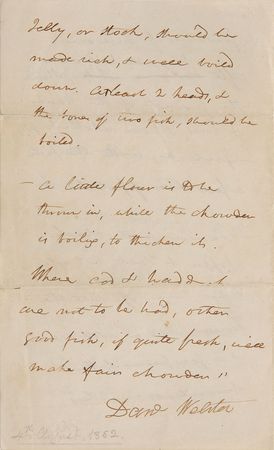 Jelly, or stock, should be
made rich, & well boiled
down. At least 2 heads, &
the bones of two fish, should be
boiled.
– A little flour is to be
thrown in, while the chowder
is boiling, to thicken it.
Where cod & haddock
are not to be had, other
good fish, if quite fresh, will
make fair chowder.
Danl Webster
4th August, 1852.